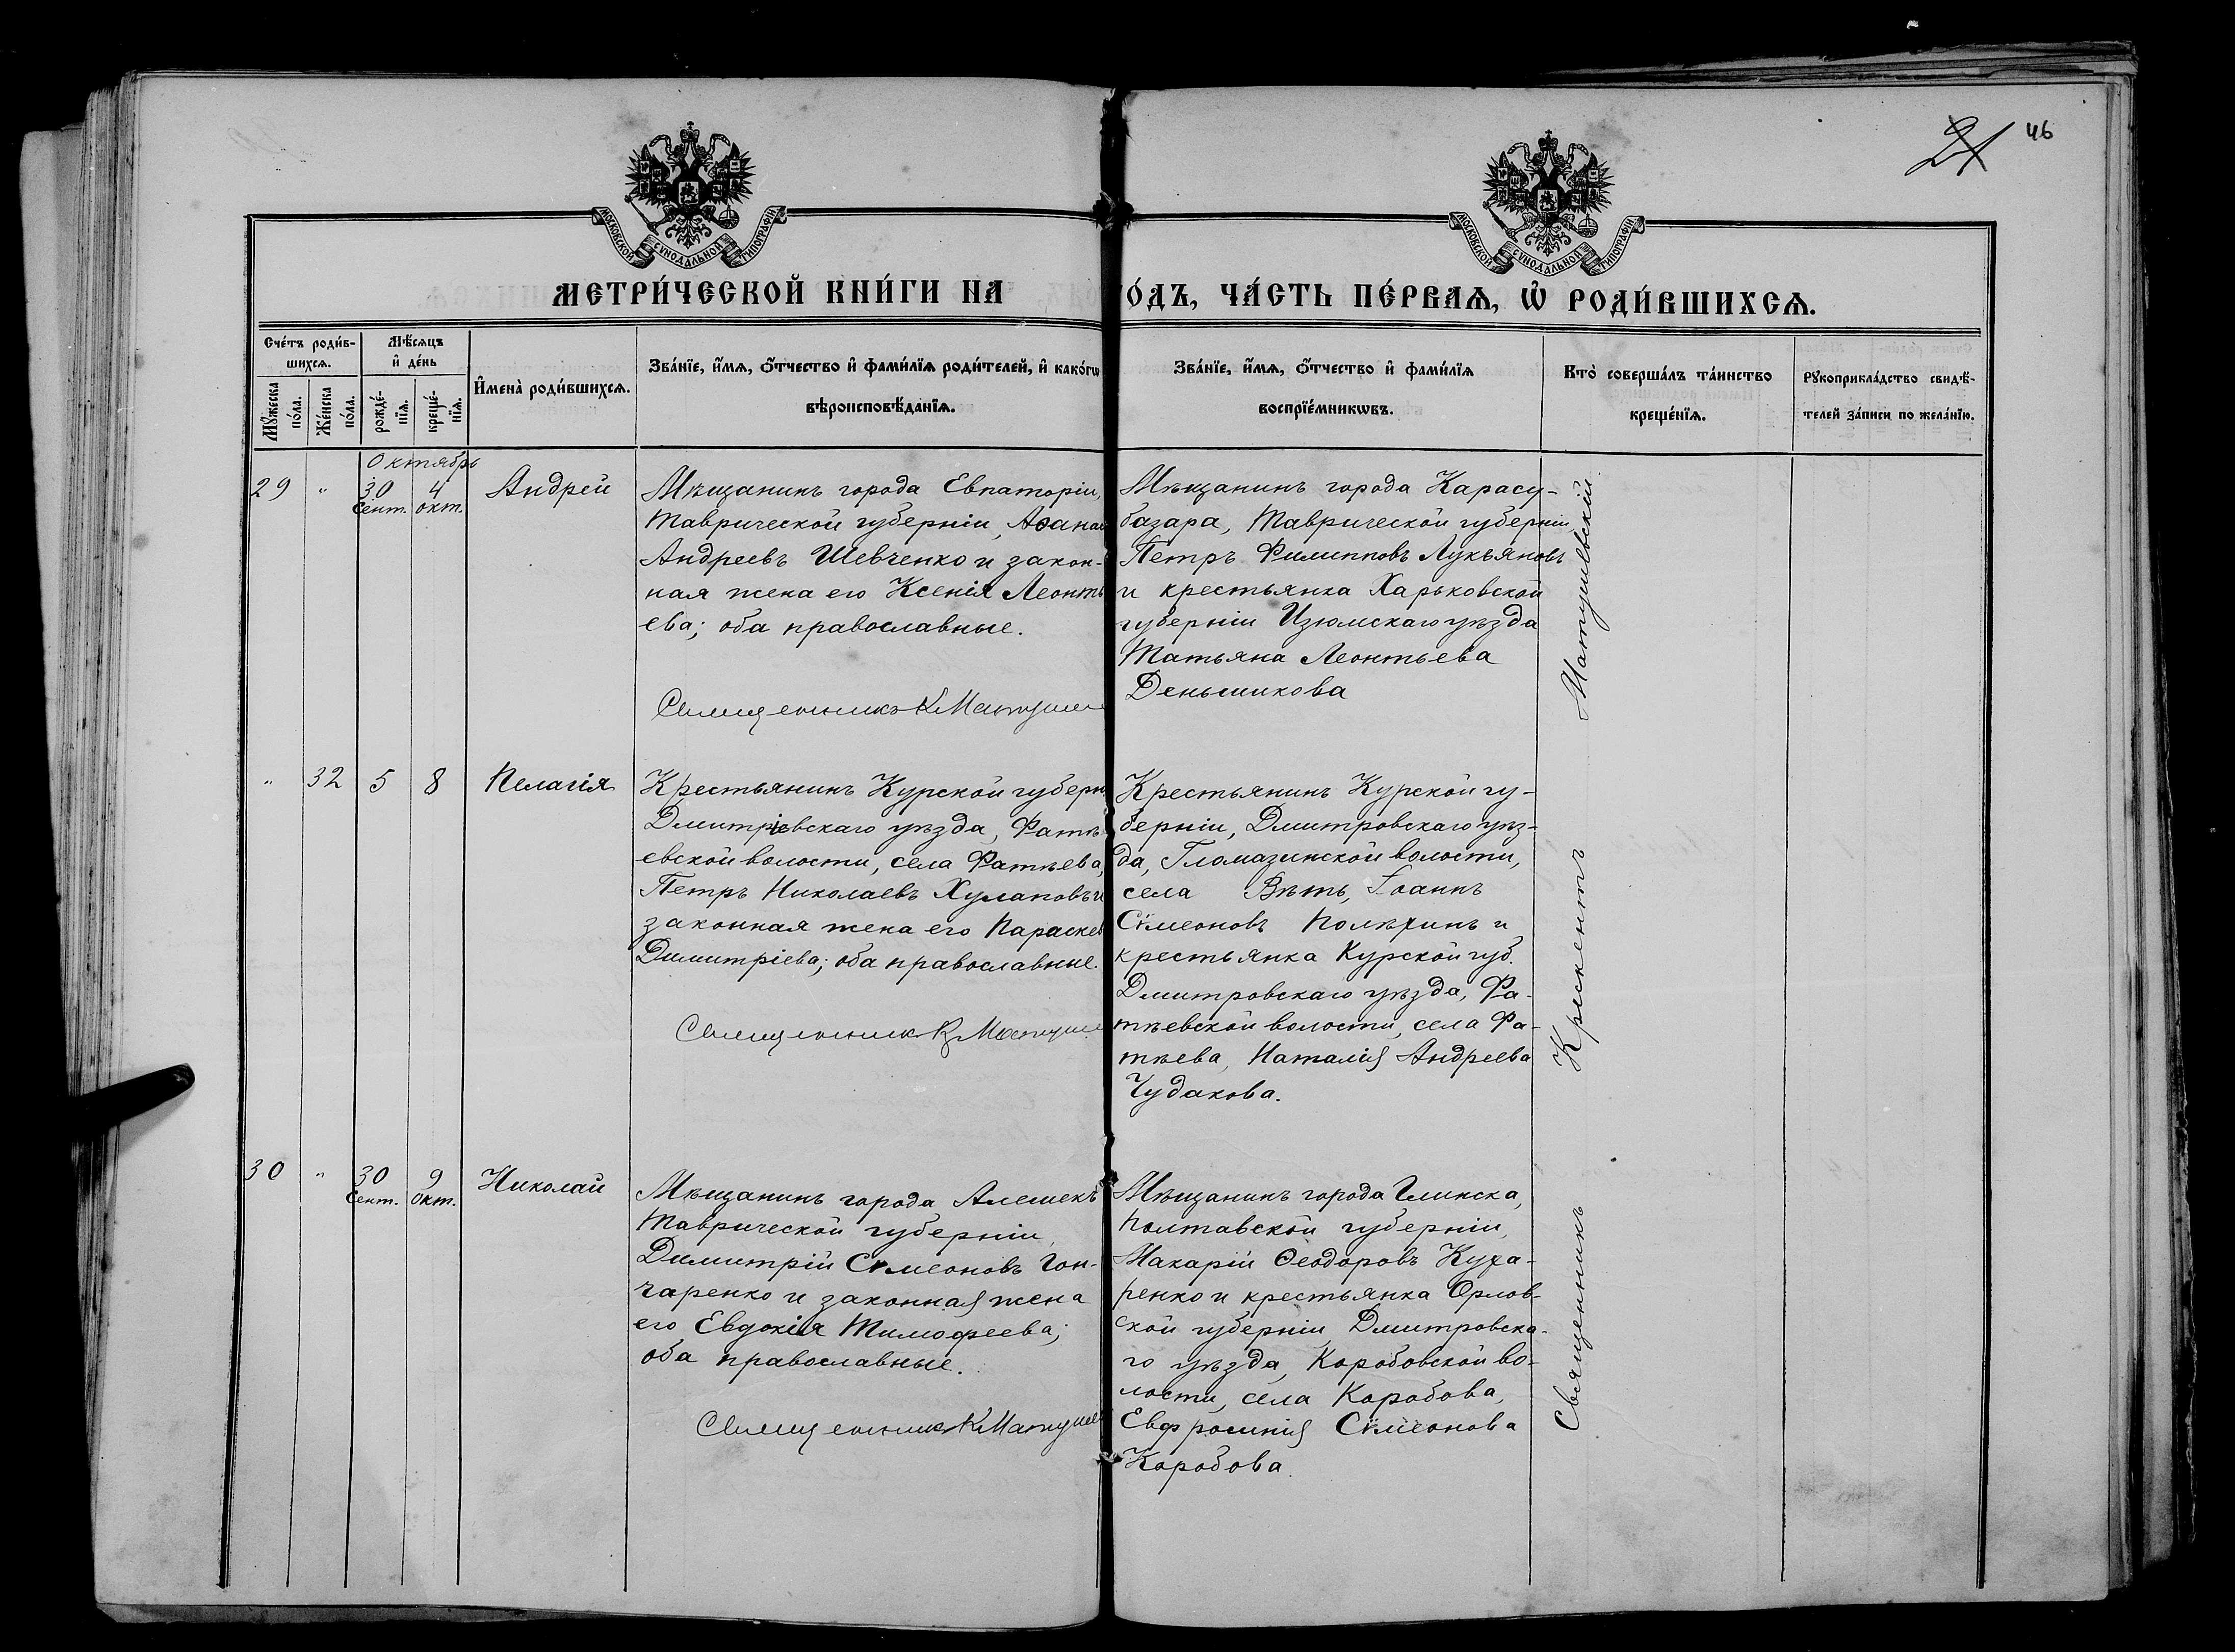 46
21
МОСКОВСКОЙ СѴНОДАЛЬНОЙ ТИПОГРАФІИ
МОСКОВСКОЙ СѴНОДАЛЬНОЙ ТИПОГРАФІИ
МЕТРИ́ЧЕСКОЙ КНИ́ГИ НА
О́ДЪ, ЧА́СТЬ ПЕ́РВАѦ, Ѡ҆ РОДИ́ВШИХСѦ.
Сче́тъ роди́в-
шихсѧ.
Мꙋ́жеска
по́ла.
Же́нска
по́ла.
Мѣ́сѧцъ
и҆ де́нь
рожде́-
нїѧ.
креще́-
нїѧ.
И҆мена̀ роди́вшихсѧ.
Зва́нїе, и҆́мѧ, ѻ҆́тчество и҆ фами́лїѧ роди́телей, и҆ како́гѡ
вѣроисповѣ́данїѧ.
Зва́нїе, и҆́мѧ, ѻ҆́тчество и҆ фами́лїѧ
воспрїе́мникѡвъ.
Кто̀ соверша́лъ та́инство
креще́нїѧ.
Рꙋкоприкла́дство свидѣ́-
телей за́писи по жела́нїю.
Октябрь
29 " 30 4 Андрей
Сент. Окт.
Мѣщанинъ города Евпаторіи,
Таврической губерніи, Аѳанас
Андреевъ Шевченко и закон-
ная жена его Ксенія Леонть
ева; оба православные.
Священникъ К Матуше
Мѣщанинъ города Карасу-
базара, Таврической губерніи
Петръ Филипповъ Лукьяновъ
и крестьянка Харьковской
губерніи Изюмскаго уѣзда
Татьяна Леонтьева
Деньшикова
" 32 5 8 Пелагія
Крестьянинъ Курской губерн
Дмитріевскаго уѣзда, Фатѣ
евской волости, села Фатѣева,
Петръ Николаевъ Хулаповъ и
законная жена его Параскев
Димитріева; оба православные.
Священник К Матуше
Крестьянинъ Курской гу-
берніи, Дмитровскаго уѣз-
да, Гломаздинской волости,
села Вѣть, Іоаннъ
Сѵмеоновъ Полѣхинъ и
крестьянка Курской губ.
Дмитровскаго уѣзда, Фа-
тѣевской волости, села Фа-
тѣева, Наталія Андреева
Чудакова.
30 " 30 9 Николай
Сент. Окт.
Мѣщанинъ города Алешекъ
Таврической губерніи,
Димитрій Сѵмеоновъ Гон-
чаренко и законная жена
его Евдокія Тимофеева;
оба православные.
Священник К Матуше
Мѣщанинъ города Глинска,
Полтавской губерніи,
Макарій Ѳеодоровъ Куха-
ренко и крестьянка Орлов-
ской губерніи Дмитровска-
го уѣзда, Коробовской во-
лости, села Коробова,
Евфросинія Сѵмеонова
Коробова.
Священникъ Крискентъ Матушевскій